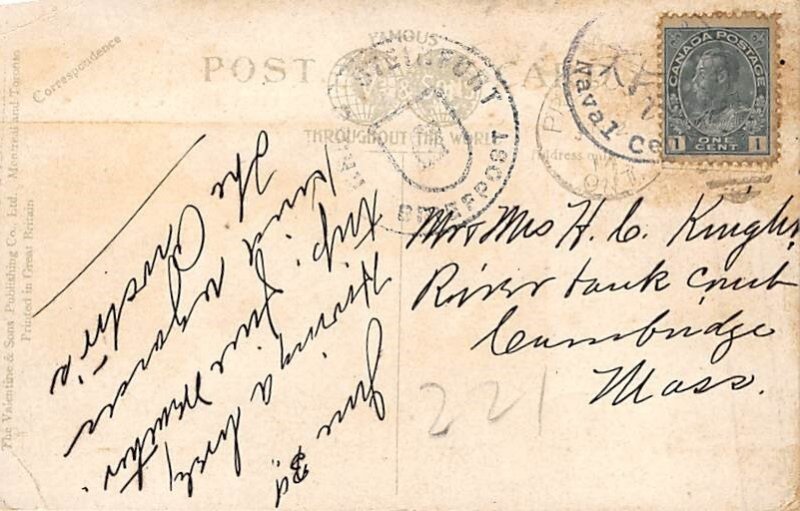 POST CARD
FAMOUS
THROUGHOUT THE WORLD
Correspondence
Address only
The Valentine & Sons Publishing Co., Ltd., Montreal and Toronto
Printed in Great Britain
CANADA POSTAGE
ONE CENT
1 1
Naval Ce
BRIEFPOST
ONT
Mr & Mrs H. C. Knight
River bank Court
Cambridge
Mass.
221
June 3d
Having a lovely
trip. Fine weather.
Kind regards
The